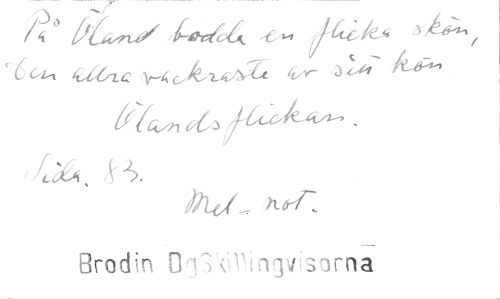 På Öland bodde en flicka skön,
Den allra vackraste av sitt kön
Ölandsflickan.
Sida. 83.
Mel. not.
Brodin DgSkillingvisorna